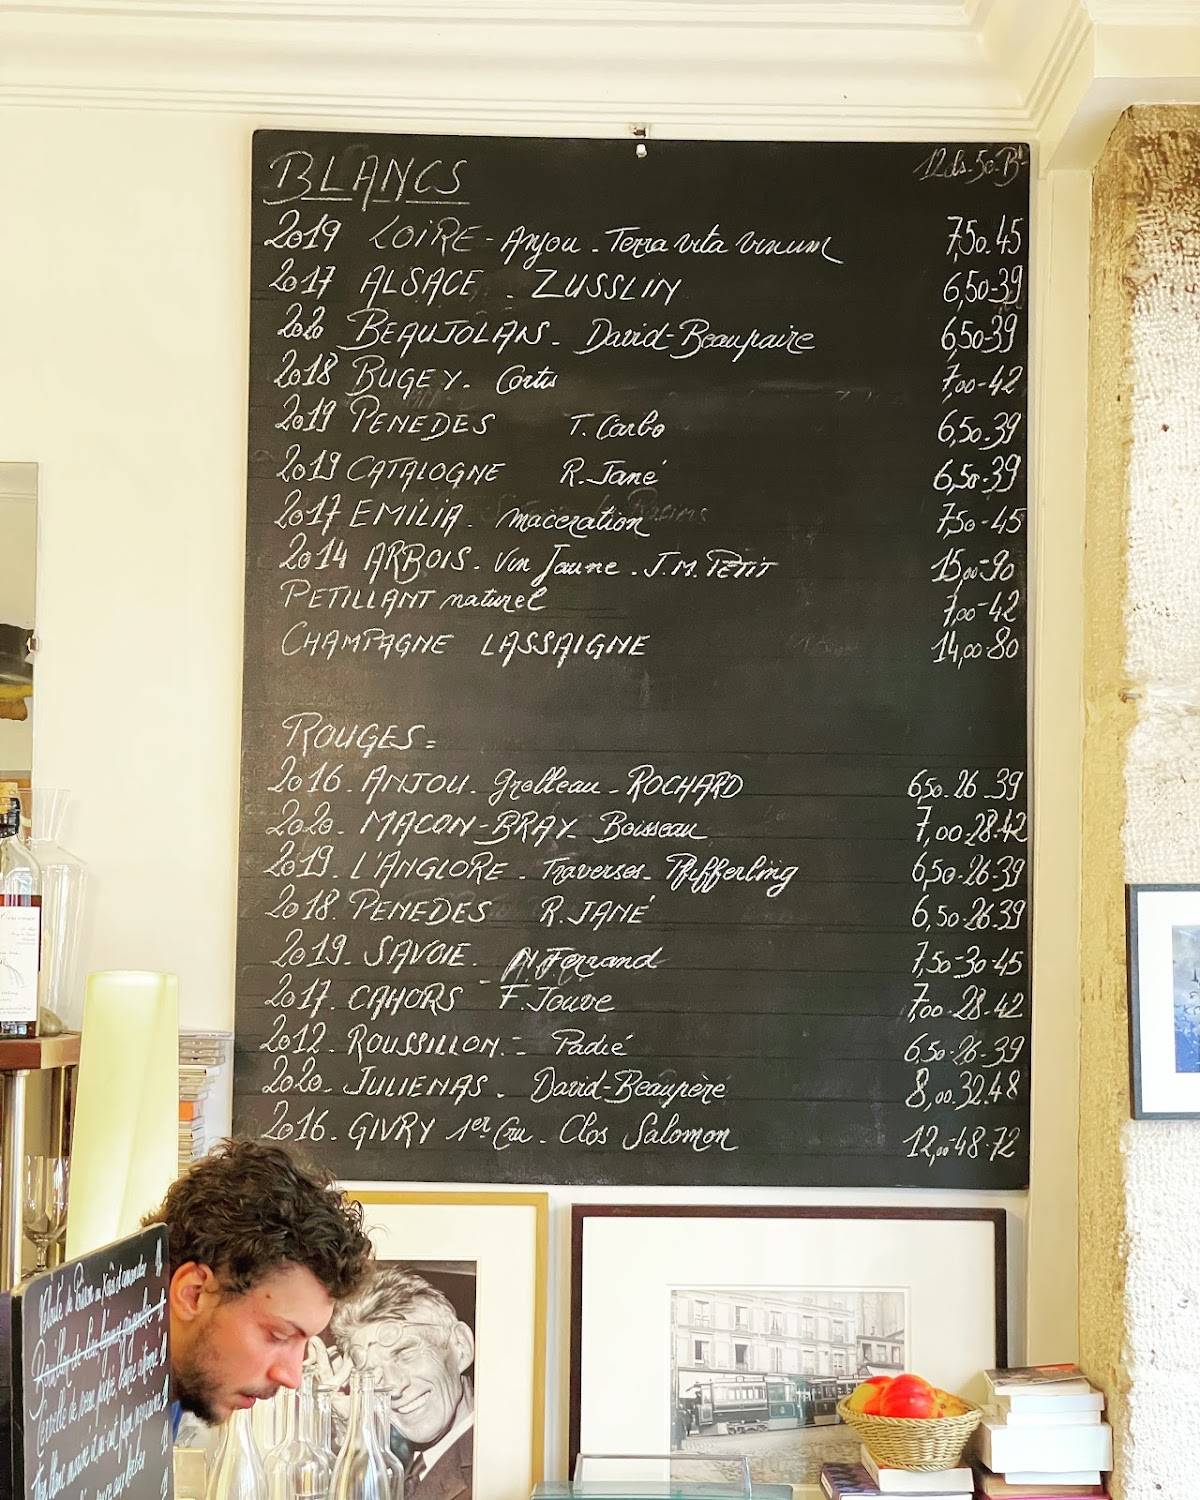 BLANCS 12cls-50-Bl
2019 LOIRE - Anjou - Terra vita vinum 7,50-45
2017 ALSACE - ZUSSLIN 6,50-39
2020 BEAUJOLAIS - David-Beaupaire 6,50-39
2018 BUGEY - Cortis 7,00-42
2019 PENEDES T. Carbo 6,50-39
2019 CATALOGNE R. Jané 6,50-39
2017 EMILIA - maceration 7,50-45
2014 ARBOIS - Vin Jaune - J.M. PETIT 15,00-90
PETILLANT naturel 7,00-42
CHAMPAGNE LASSAIGNE 14,00-80
ROUGES =
2016 - ANJOU - grolleau - ROCHARD 6,50-26-39
2020 - MACON-BRAY - Boisseau 7,00-28-42
2019 - L'ANGLORE - Traverses - Pfifferling 6,50-26-39
2018 - PENEDES R. JANÉ 6,50-26-39
2019 - SAVOIE - Ferrand 7,50-30-45
2017 - CAHORS - F. Jouve 7,00-28-42
2012 - ROUSSILLON - Padié 6,50-26-39
2020 - JULIENAS - David-Beaupère 8,00-32-48
2016 - GIVRY 1er Cru - Clos Salomon 12,00-48-72
Velouté de